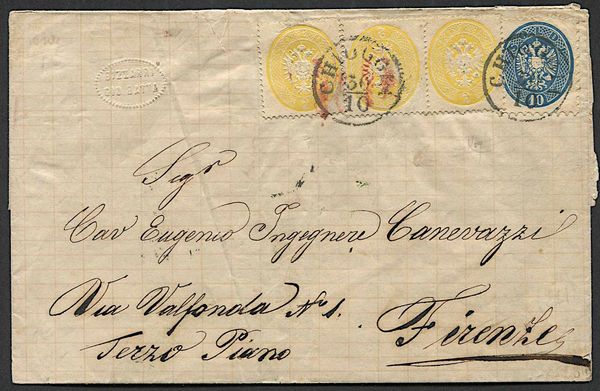 CHIOGGIA
30
10
10
Sigr
Cav Eugenio Ingegnere Canevazzi
Via Valfonda No 1.
Terzo Piano
Firenze